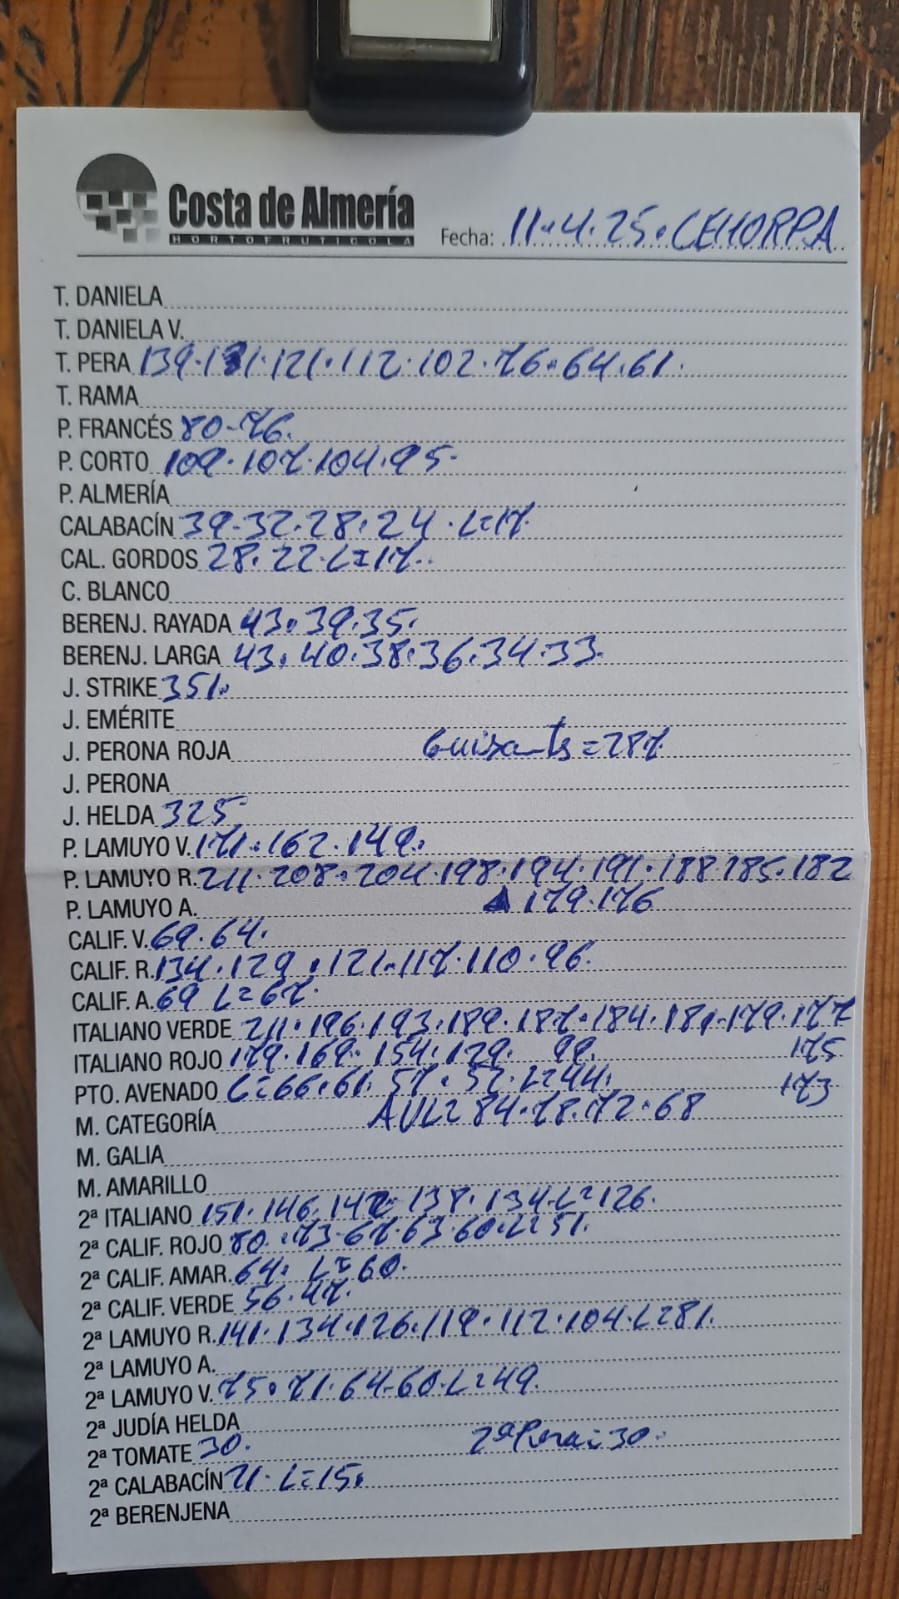 Costa de Almería
HORTOFRUTICOLA
Fecha: 11.4.25. CEHORPA
T. DANIELA
T. DANIELA V.
T. PERA 139.131.121.112.102.76.64.61.
T. RAMA
P. FRANCÉS 80-76.
P. CORTO 109.107.104.95.
P. ALMERÍA
CALABACÍN 39.32.28.24.L=17.
CAL. GORDOS 28.22.L=17.
C. BLANCO
BERENJ. RAYADA 43.39.35.
BERENJ. LARGA 43.40.38.36.34.33.
J. STRIKE 351.
J. EMÉRITE
J. PERONA ROJA Guisantes=287
J. PERONA
J. HELDA 325
P. LAMUYO V. 171.162.149.
P. LAMUYO R. 211.208.204.198.194.191.188.185.182
P. LAMUYO A. ▲ 179.176
CALIF. V. 69.64.
CALIF. R. 134.129.121.117.110.96.
CALIF. A. 69 L=67.
ITALIANO VERDE 211.196.193.189.187.184.181.179.177
ITALIANO ROJO 179.169.154.129. 99. 175
PTO. AVENADO L=66.61.57.52.L=44. 173
M. CATEGORÍA AVL=84.78.72.68
M. GALIA
M. AMARILLO
2ª ITALIANO 151.146.142.138.134.L=126.
2ª CALIF. ROJO 80.73.67.63.60.L=51.
2ª CALIF. AMAR. 64. L=60.
2ª CALIF. VERDE 56.47.
2ª LAMUYO R. 141.134.126.119.112.104.L=81.
2ª LAMUYO A.
2ª LAMUYO V. 75.71.64.60.L=49.
2ª JUDÍA HELDA
2ª TOMATE 30. 2ª Pera=30.
2ª CALABACÍN 21. L=15.
2ª BERENJENA